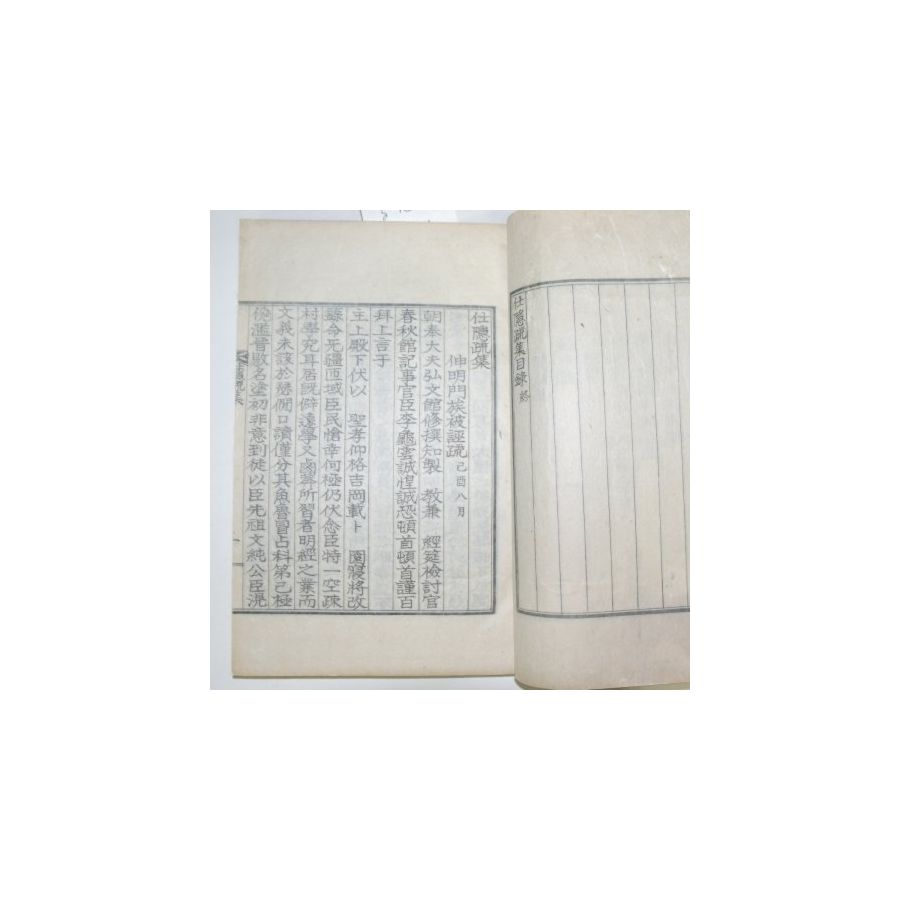 仕隱疏集目錄 終
仕隱疏集
伸明門族被誣疏 己酉八月
朝奉大夫弘文館修撰知製 教兼 經筵檢討官
春秋館記事官臣李龜雲誠惶誠恐頓首頓首謹百
拜上言于
主上殿下伏以 聖孝仰格吉岡載卜 園寢將改
緜命无疆匝域臣民愴幸何極仍伏念臣特一空疎
村學究耳居旣僻遠學又鹵莽所習者明經之業而
文義未該於瑟僩口讀僅分其魚魯冒占科第已極
濫管敗名塗初非意到徒以臣先祖文純公臣滉